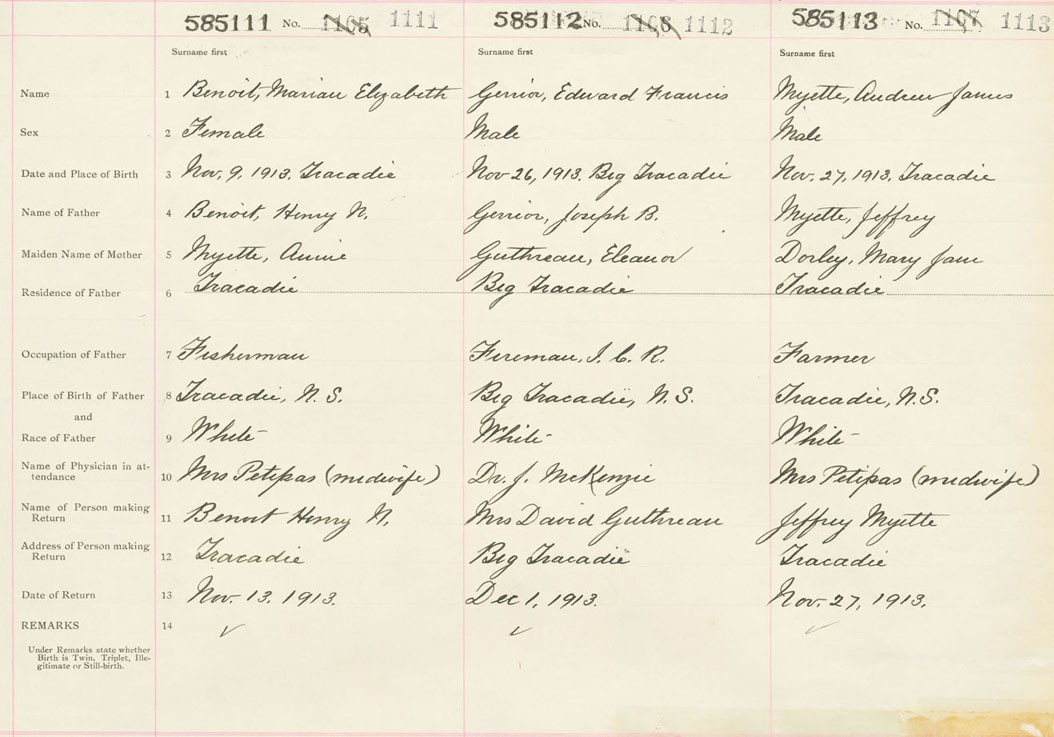 585111 No. 1105 1111 585112 No. 1106 1112 585113 No. 1107 1113
Surname first Surname first Surname first
Name 1 Benoit, Marian Elizabeth Gerrior, Edward Francis Myette, Andrew James
Sex 2 Female Male Male
Date and Place of Birth 3 Nov. 9, 1913. Tracadie Nov 26, 1913. Big Tracadie Nov. 27, 1913. Tracadie
Name of Father 4 Benoit, Henry N. Gerrior, Joseph B. Myette, Jeffrey
Maiden Name of Mother 5 Myette, Annie Guthreau, Eleanor Dorley, Mary Jane
Residence of Father 6 Tracadie Big Tracadie Tracadie
Occupation of Father 7 Fisherman Fireman, I. C. R. Farmer
Place of Birth of Father 8 Tracadie, N.S. Big Tracadie, N.S. Tracadie, N.S.
and
Race of Father 9 White White White
Name of Physician in at-
tendance 10 Mrs Petipas (midwife) Dr. J. McKenzie Mrs Petipas (midwife)
Name of Person making
Return 11 Benoit Henry N. Mrs David Guthreau Jeffrey Myette
Address of Person making
Return 12 Tracadie Big Tracadie Tracadie
Date of Return 13 Nov. 13. 1913. Dec 1, 1913. Nov. 27, 1913.
REMARKS 14 ✓ ✓ ✓
Under Remarks state whether
Birth is Twin, Triplet, Ille-
gitimate or Still-birth.